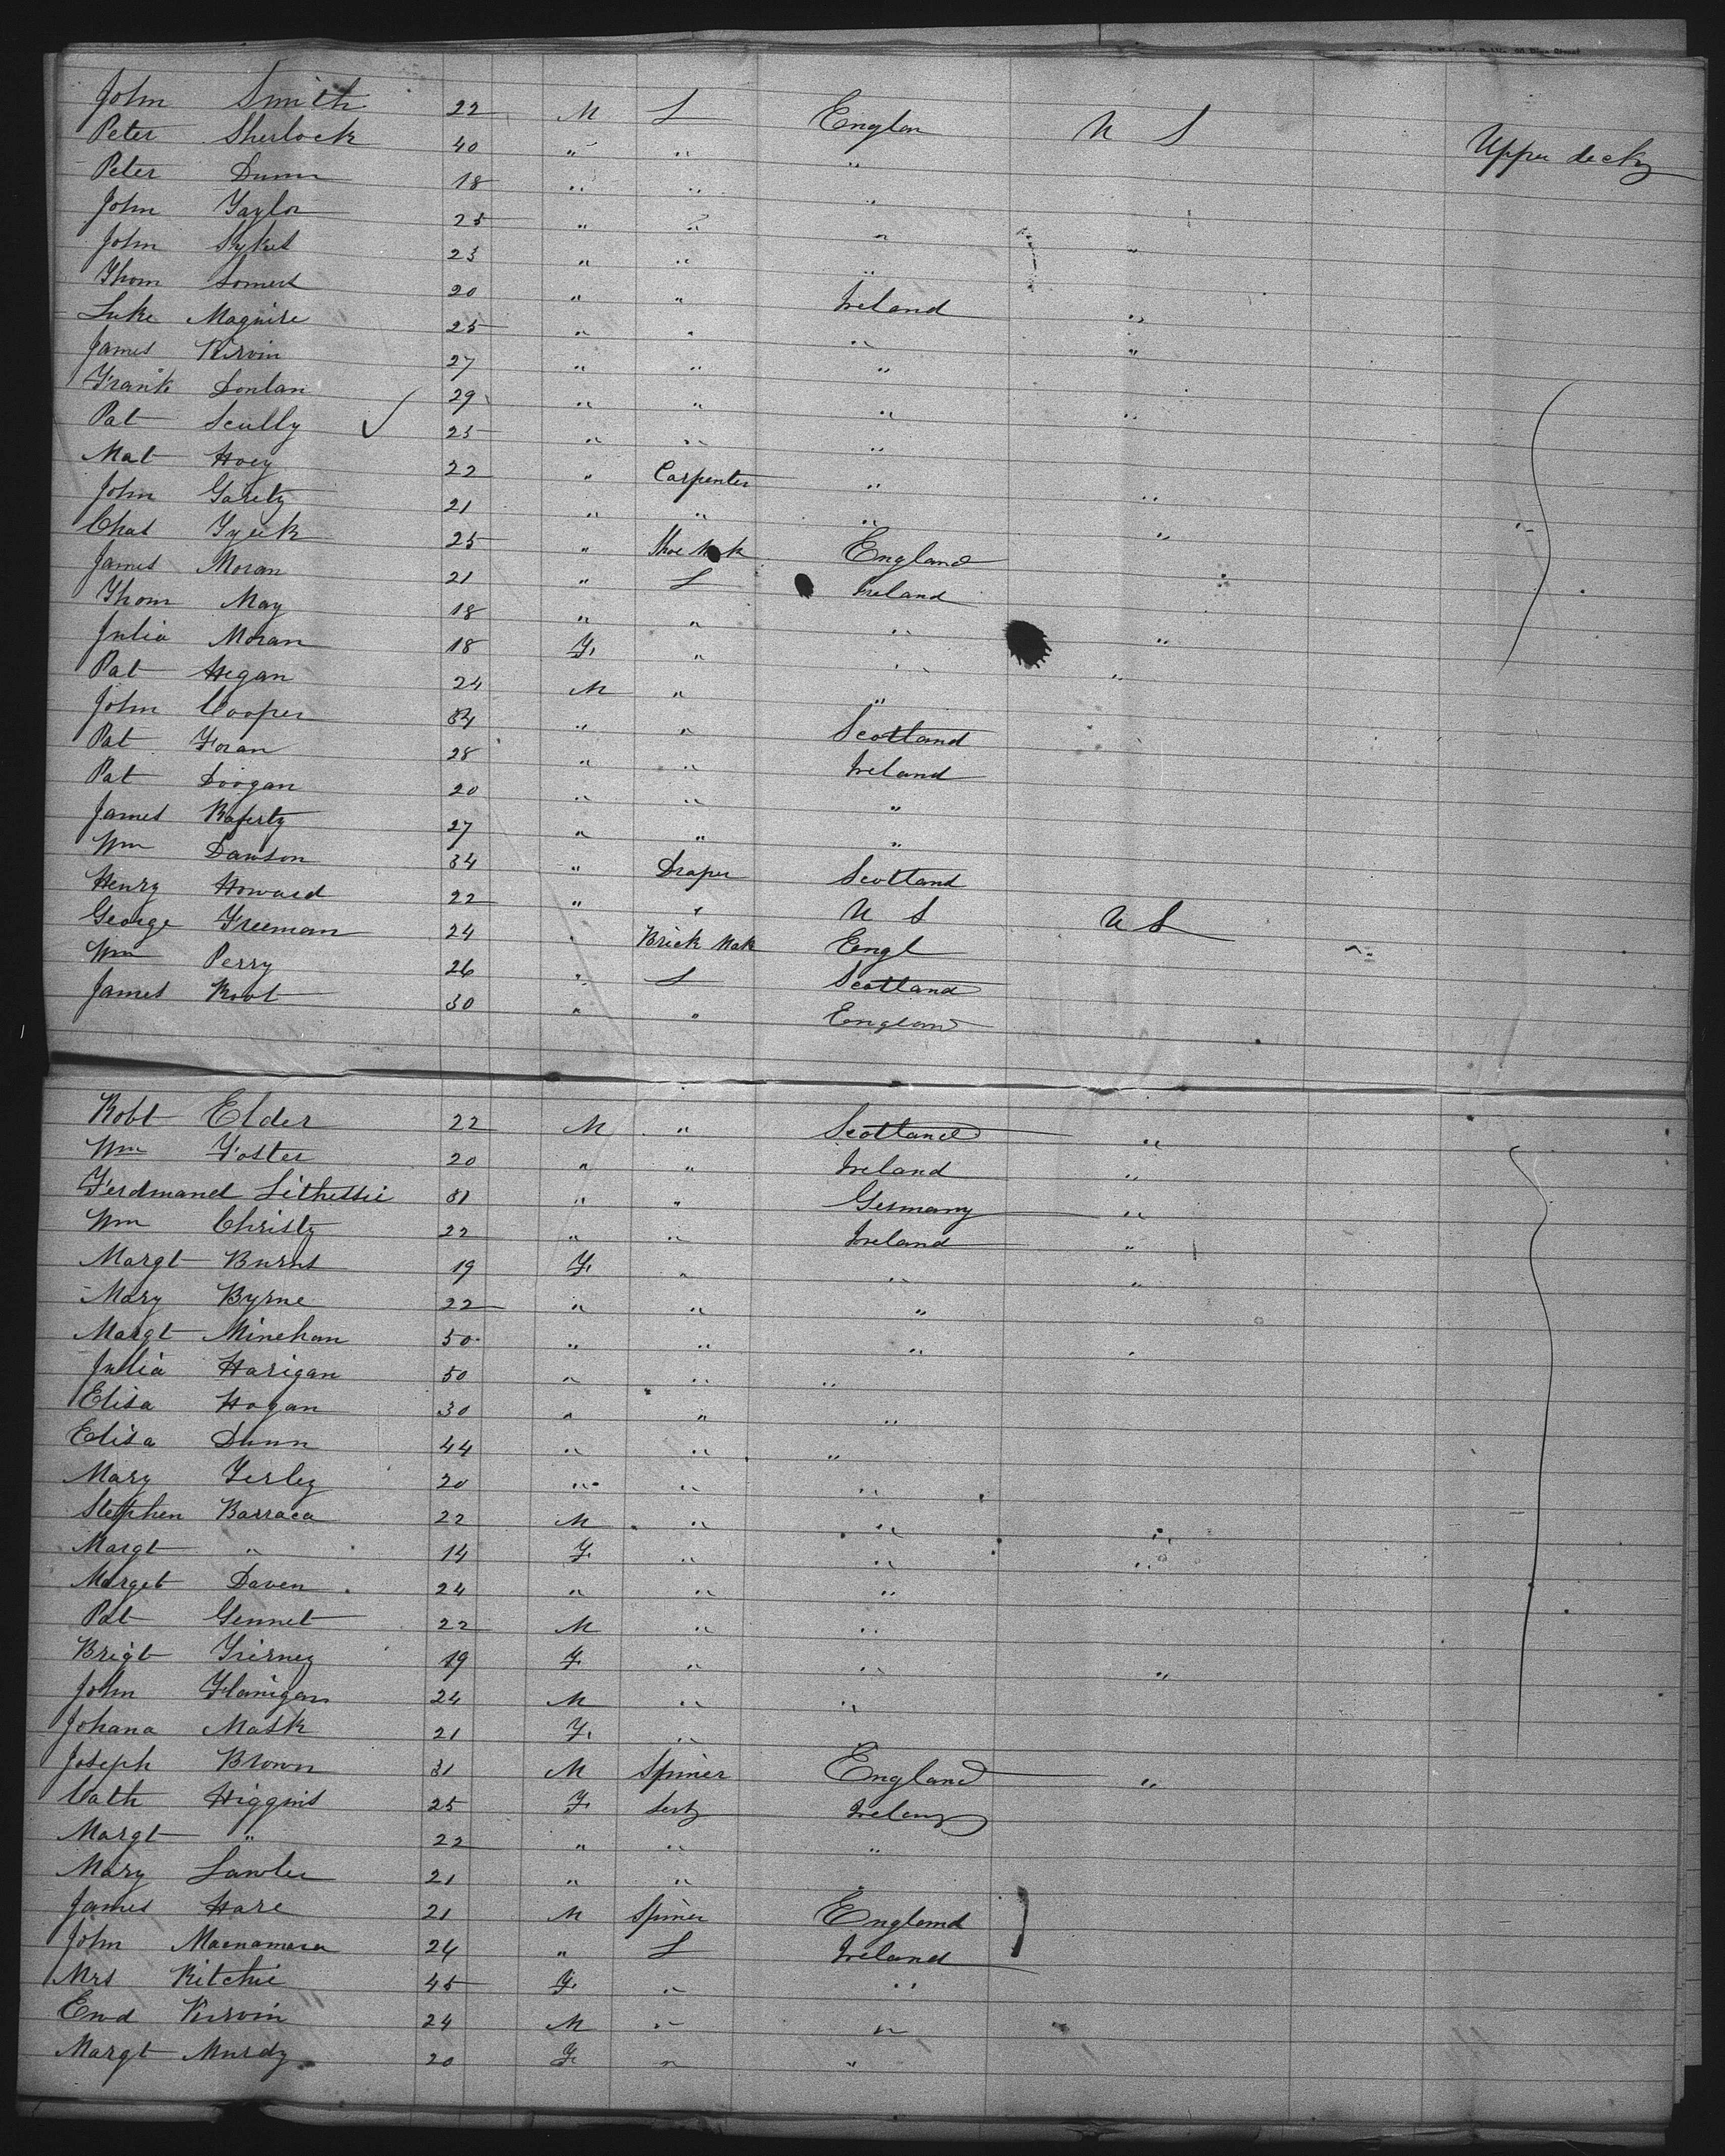 John Smith 22 M L Englan U S Upper deck
Peter Sherlock 40 " " "
Peter Dunn 18 " " "
John Taylor 25 " " "
John Sykes 23 " " " "
Thom Somers 20 " " Ireland
Luke Maguire 25 " " " "
James Kirvin 27 " " " "
Frank Donlan 29 " " "
Pat Scully ✓ 25 " " " "
Mat Hoey 22 " Carpenter "
John Garety 21 " " " "
Chas 25 " Shoe Mak England "
James Moran 21 " L Ireland
Thom May 18 " " "
Julia Moran 18 F. " " "
Pat Hegan 24 M " " "
John Cooper 34 " " Scotland
Pat Foran 28 " " Ireland
Pat Doogan 20 " " "
James Raferty 27 " " "
Wm Dawson 34 " Draper Scotland
Henry Howard 22 " " U S U S
George Freeman 24 " Brick Mak Engl
Wm Perry 26 " L Scotland
James Root 30 " " England
Robt Elder 22 M " Scotland "
Wm Foster 20 " " Ireland "
Ferdinand 31 " " Germany "
Wm Christy 22 " " Ireland "
Margt Burns 19 F. " " "
Mary Byrne 22 " " "
Margt Minehan 50 " " " "
Julia Harigan 50 " " "
Elisa Hogan 30 " " "
Elisa Dunn 44 " " "
Mary Ferley 20 " " "
Stephen Barraca 22 M " " "
Margt " 14 F. " " "
Marget Daven 24 " " "
Pat Gennet 22 M " "
Brigt Tierney 19 F. " " "
John Flanigan 24 M " "
Johana Mask 21 F. "
Joseph Brown 31 M Spiner England "
Cath Higgins 25 F. Sert Ireland
Margt " 22 " " "
Mary Lawler 21 " " "
James Hare 21 M Spiner England
John Macnamara 24 " L Ireland
Mrs Ritchie 45 F. " "
Ewd Kirvin 24 M " "
Margt Murdy 20 F. " "